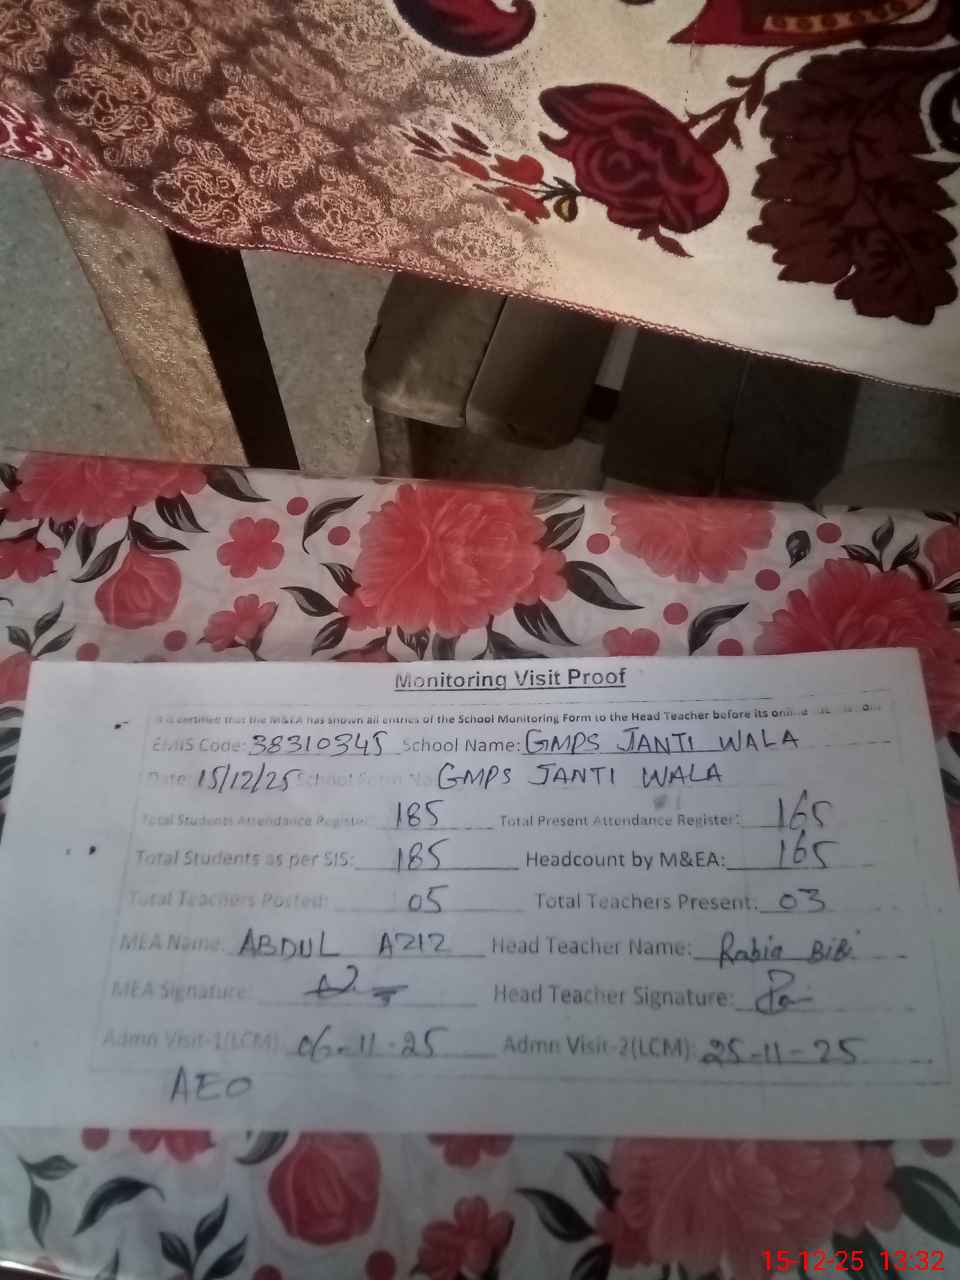 Monitoring Visit Proof
It is certified that the M&EA has shown all entries of the School Monitoring Form to the Head Teacher before its online
EMIS Code: 38310345 School Name: GMPS JANTI WALA
Date: 15/12/25 School Form No GMPS JANTI WALA
Total Students Attendance Register: 185 Total Present Attendance Register: 165
Total Students as per SIS: 185 Headcount by M&EA: 165
Total Teachers Posted: 05 Total Teachers Present: 03
MEA Name: ABDUL AZIZ Head Teacher Name: Rabia BiBi
MEA Signature: Head Teacher Signature:
Admn Visit-1(LCM) 06-11-25 Admn Visit-2(LCM): 25-11-25
AEO
15-12-25 13:32